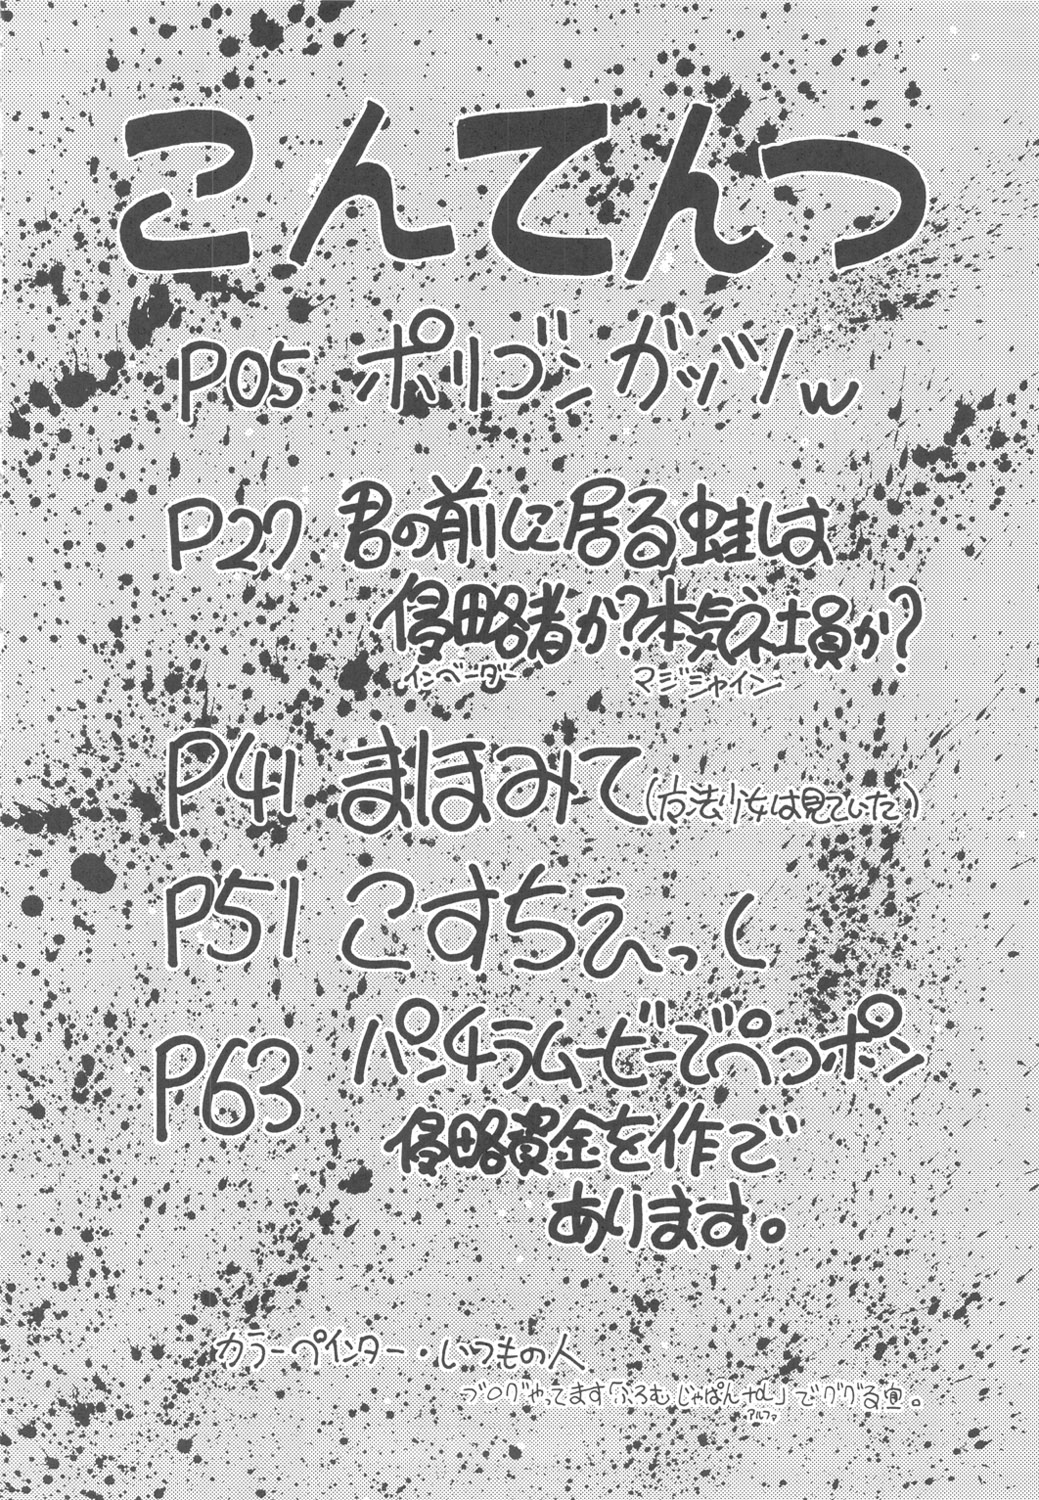 こんてんつ
P05 ポリゴンガッツw
P27 君の前に居る蛙は
侵略者か?本気ネ土員か?
インベーダー マジシャイン
P41 まほみて(方法少女は見ていた)
P51 こすちぇっく
P63 パンチラムービーでペっポン
侵略資金を作で
あります。
カラーペインター・いつもの人
ブログやってます「ふろむじゃぱんα」でググる宜。
アルファ